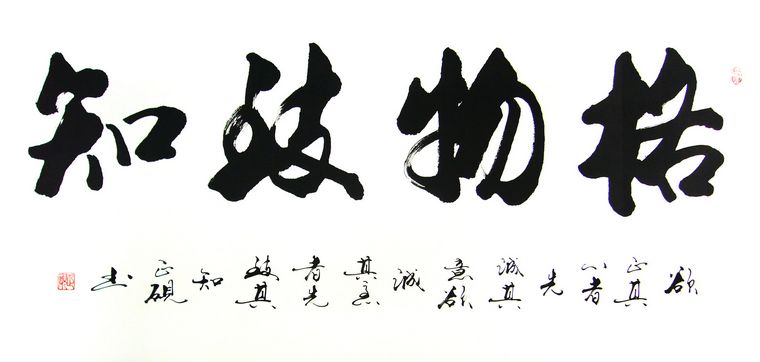 格物致知
欲正其心者先诚其意欲诚其意者先致其知 正砚书